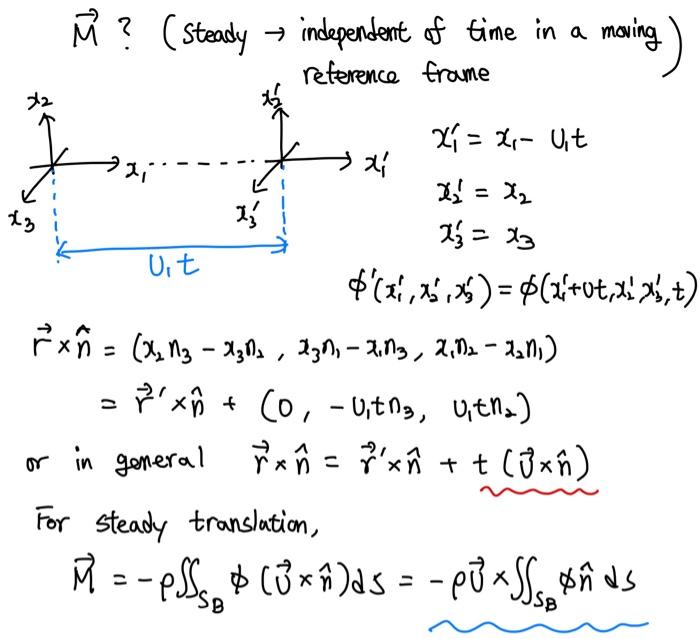 M⃗ ? (Steady → independent of time in a moving
reference frame)
x₂ x₂′
x₁ x₁′
x₃ x₃′
U₁t
x₁′ = x₁ - U₁t
x₂′ = x₂
x₃′ = x₃
ϕ′(x₁′, x₂′, x₃′) = ϕ(x₁′+Ut, x₂′, x₃′, t)
r⃗ × n̂ = (x₂n₃ - x₃n₂ , x₃n₁ - x₁n₃ , x₁n₂ - x₂n₁)
= r⃗′ × n̂ + (0, -U₁tn₃, U₁tn₂)
or in general r⃗ × n̂ = r⃗′ × n̂ + t (U⃗ × n̂)
For steady translation,
M⃗ = -ρ∬_{S_B} ϕ (U⃗ × n̂)ds = -ρU⃗ × ∬_{S_B} ϕn̂ ds